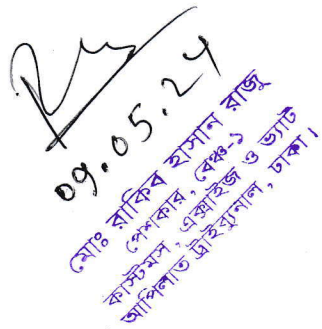 09.05.24
মোঃ রাকিব হাসান রাজু
পেশকার, বেঞ্চ-১
কাস্টমস, এক্সাইজ ও ভ্যাট
আপিলাত ট্রাইব্যুনাল, ঢাকা।